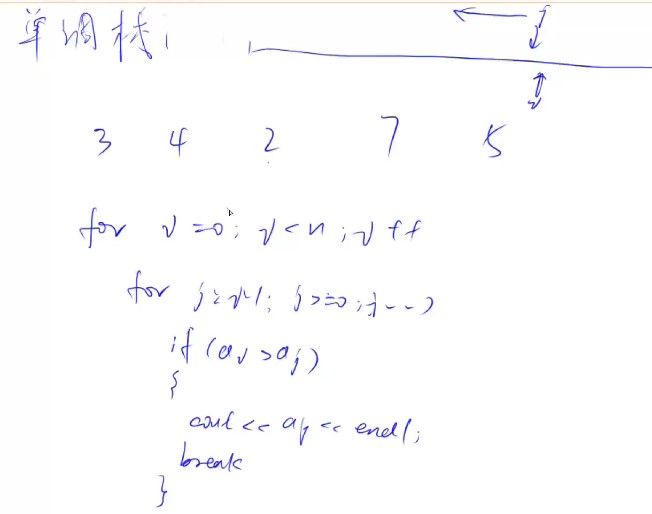 单调栈：
i
j
3 4 2 7 5
for i=0; i<n; i++
for j=i-1; j>=0; j--)
if (ai >aj)
{
cout << aj << endl;
break
}